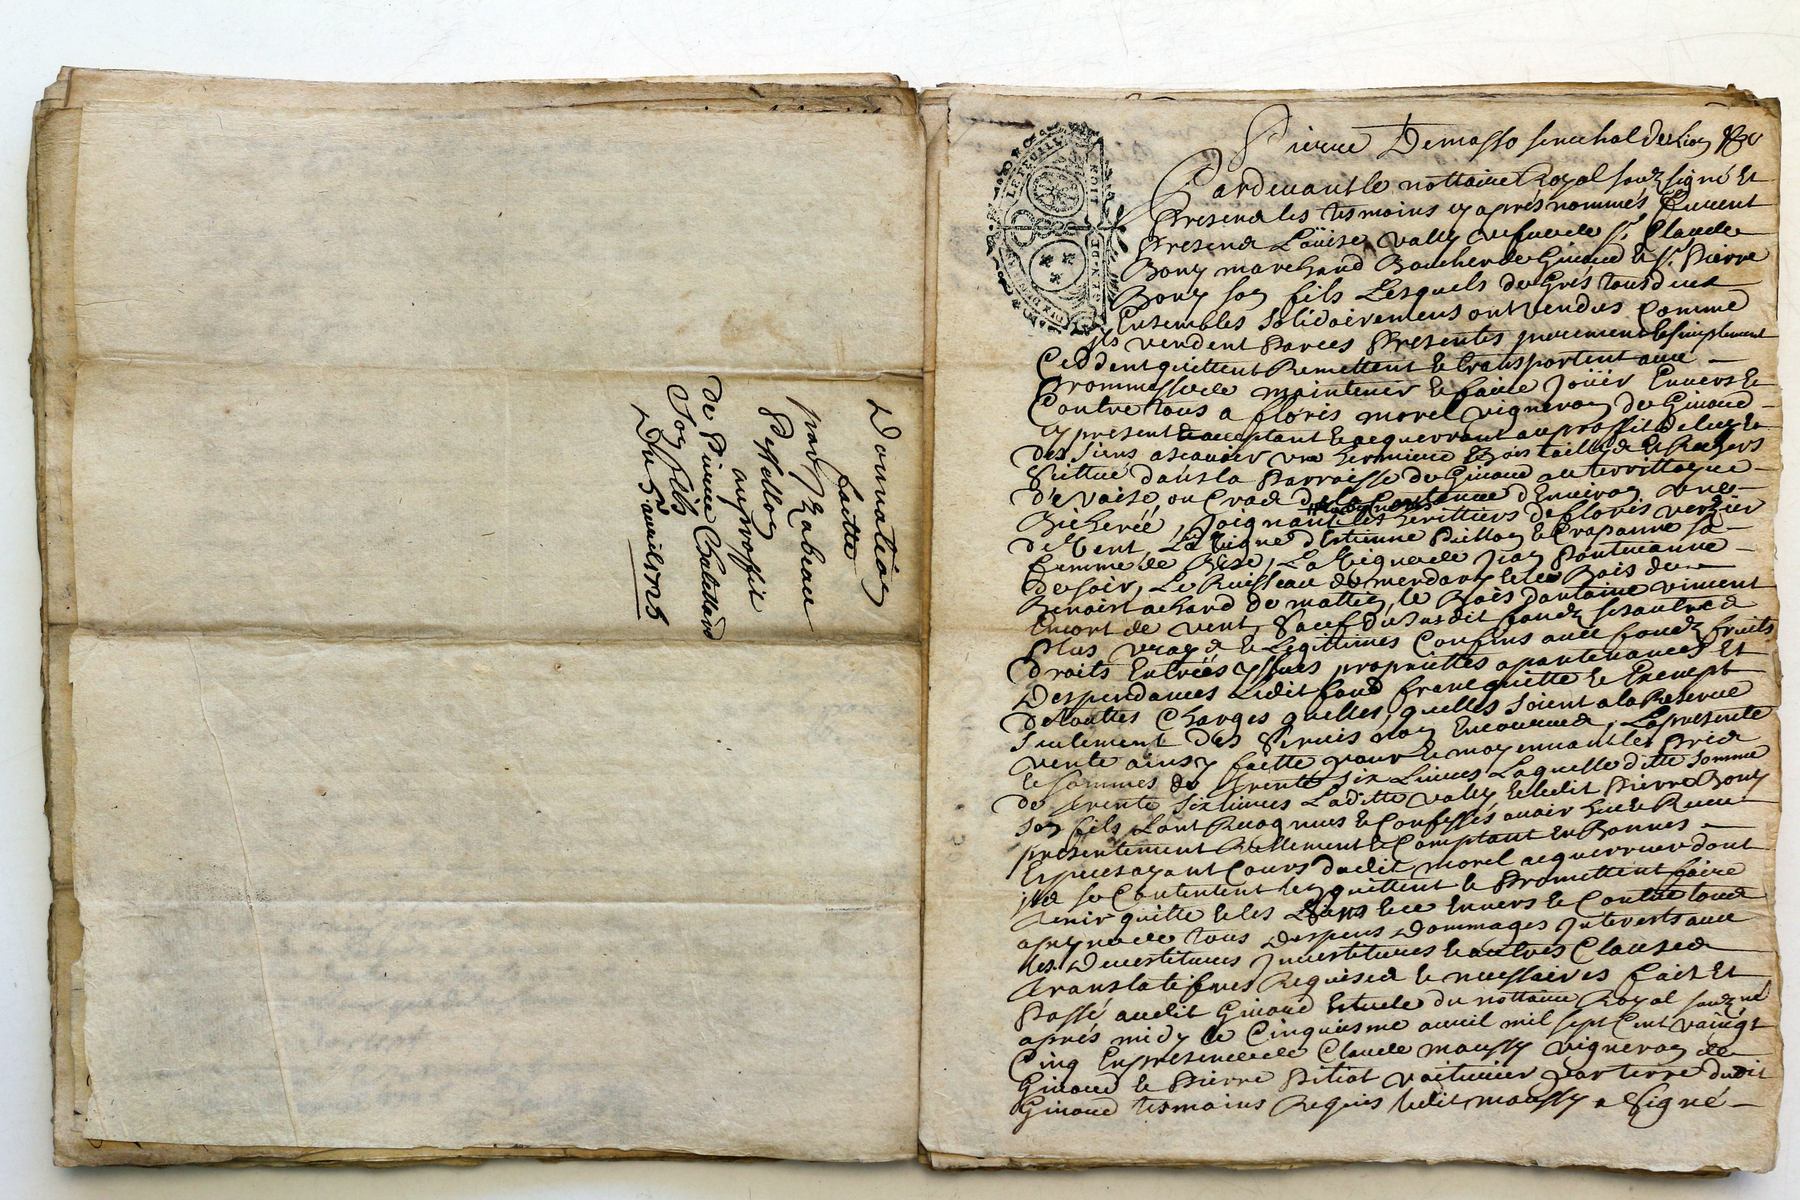 Donnation
faitte
par Izabeau
Pepollon
au proffit
de Pierre Chatellard
Son fils
Du 5e avril 1725
Pierre Demasso senechal de Lion &c
Pardevant le nottaire Royal souzsigné et
Presend les tesmoins cy après nommés furent
Presend Loüise Vally vefue de Sr. Claude
Bony marchand Boucher de Givord & Sr. Pierre
Bony son fils Lesquels de Grés tous deux
Ensembles solidairement ont vendus comme
ils vendent Par ces Presentes purement & simplement
Ceddent quittent Remettent & transportent avec
Promesse de maintenir & faire Joüir Envers &
Contre tous a floris morel vigneron de Givord
cy present & acceptant & acquerrant au proffit de luy &
des siens ascavoir une hermiere & Bois taillis
Scittué dans la Parroisse de Givord au territtoyre
de la Contenue d'Environ une
Bicherée, Joignant les herittiers de floris verzier
de Vent, La Vigne d'Estienne & sa
femme de Bize, La Vigne de Jean
de soir, Le Ruisseau de & le Bois de
Benoist de matin, le Bois d'antoine vincent
Encort de vent, Sauf du susdit fondz ses autres
Plus vrays & Legittimes Confins avec fondz fruits
droits Entrées yssues propriettes apartenances Et
Despendances Ledit fond franc quitte & Exempt
de touttes Charges quelles quelles soient a la Reserve
seulement des servis non Encourues, La presente
vente ainsy faitte pour & moyennant le Prix
& sommes de trente six Livres Laquelle ditte somme
de trente six livres Laditte Vally & ledit Pierre Bony
son fils L'ont Recognus & Confessés avoir heu & Receu
presentement Reellement & Comptant En Bonnes
Especes ayant Cours dudit morel acquerreur dont
ils se Contentent les quittent & Promettent faire
tenir quitte & les siens Envers & Contre tous
a peyne de tous Despens Dommages Interests avec
les Devestitures Investitures & autres Clauses
translatifves Requises & necessaires fait Et
Passé audit Givord Estude du nottaire Royal souzné
aprés midy Le Cinquiesme avril mil sept Cent vaingt
Cinq En presence de Claude moussy vigneron de
Givord & Pierre Pitiot voiturier par terre dudit
Givord tesmoins Requis Ledit moussy a signé